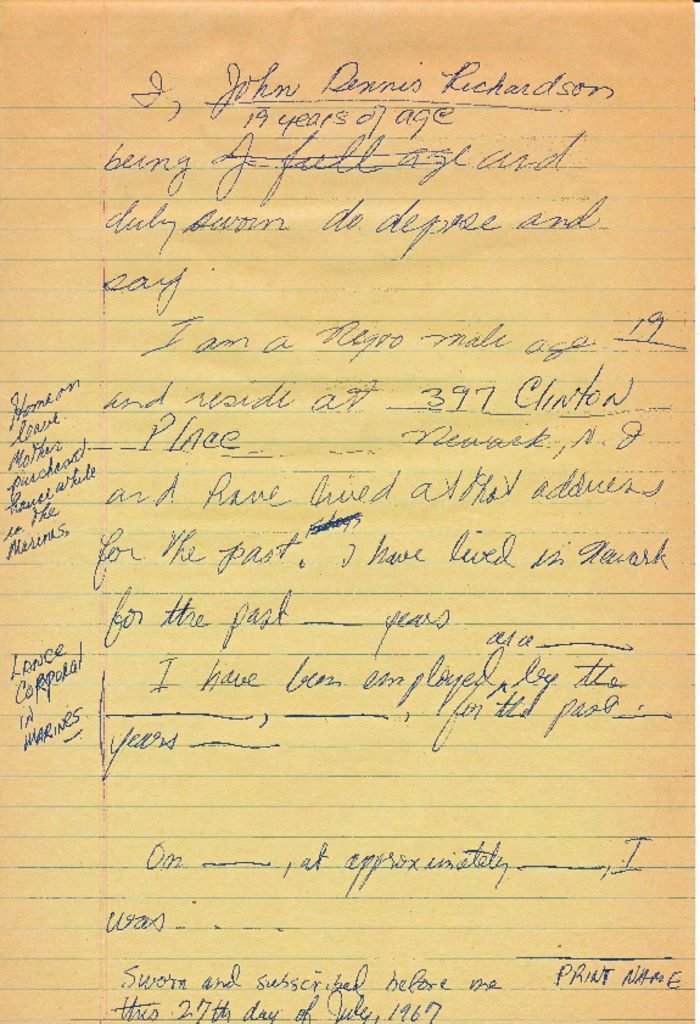 I, John Dennis Richardson
19 years of age
being of full age and
duly sworn do depose and
say
I am a Negro male age 19
and reside at 397 Clinton
Place Newark, N.J
and have lived at that address
for the past. I have lived in Newark
for the past ___ years
as a ___
I have been employed by the
___, ___, for the past ___
years ___
Home on
leave
Mother
purchased
house while
in the
Marines.
LANCE
CORPORAL
IN
MARINES
On ___, at approximately ___, I
was . . .
PRINT NAME
Sworn and subscribed before me
this 27th day of July, 1967